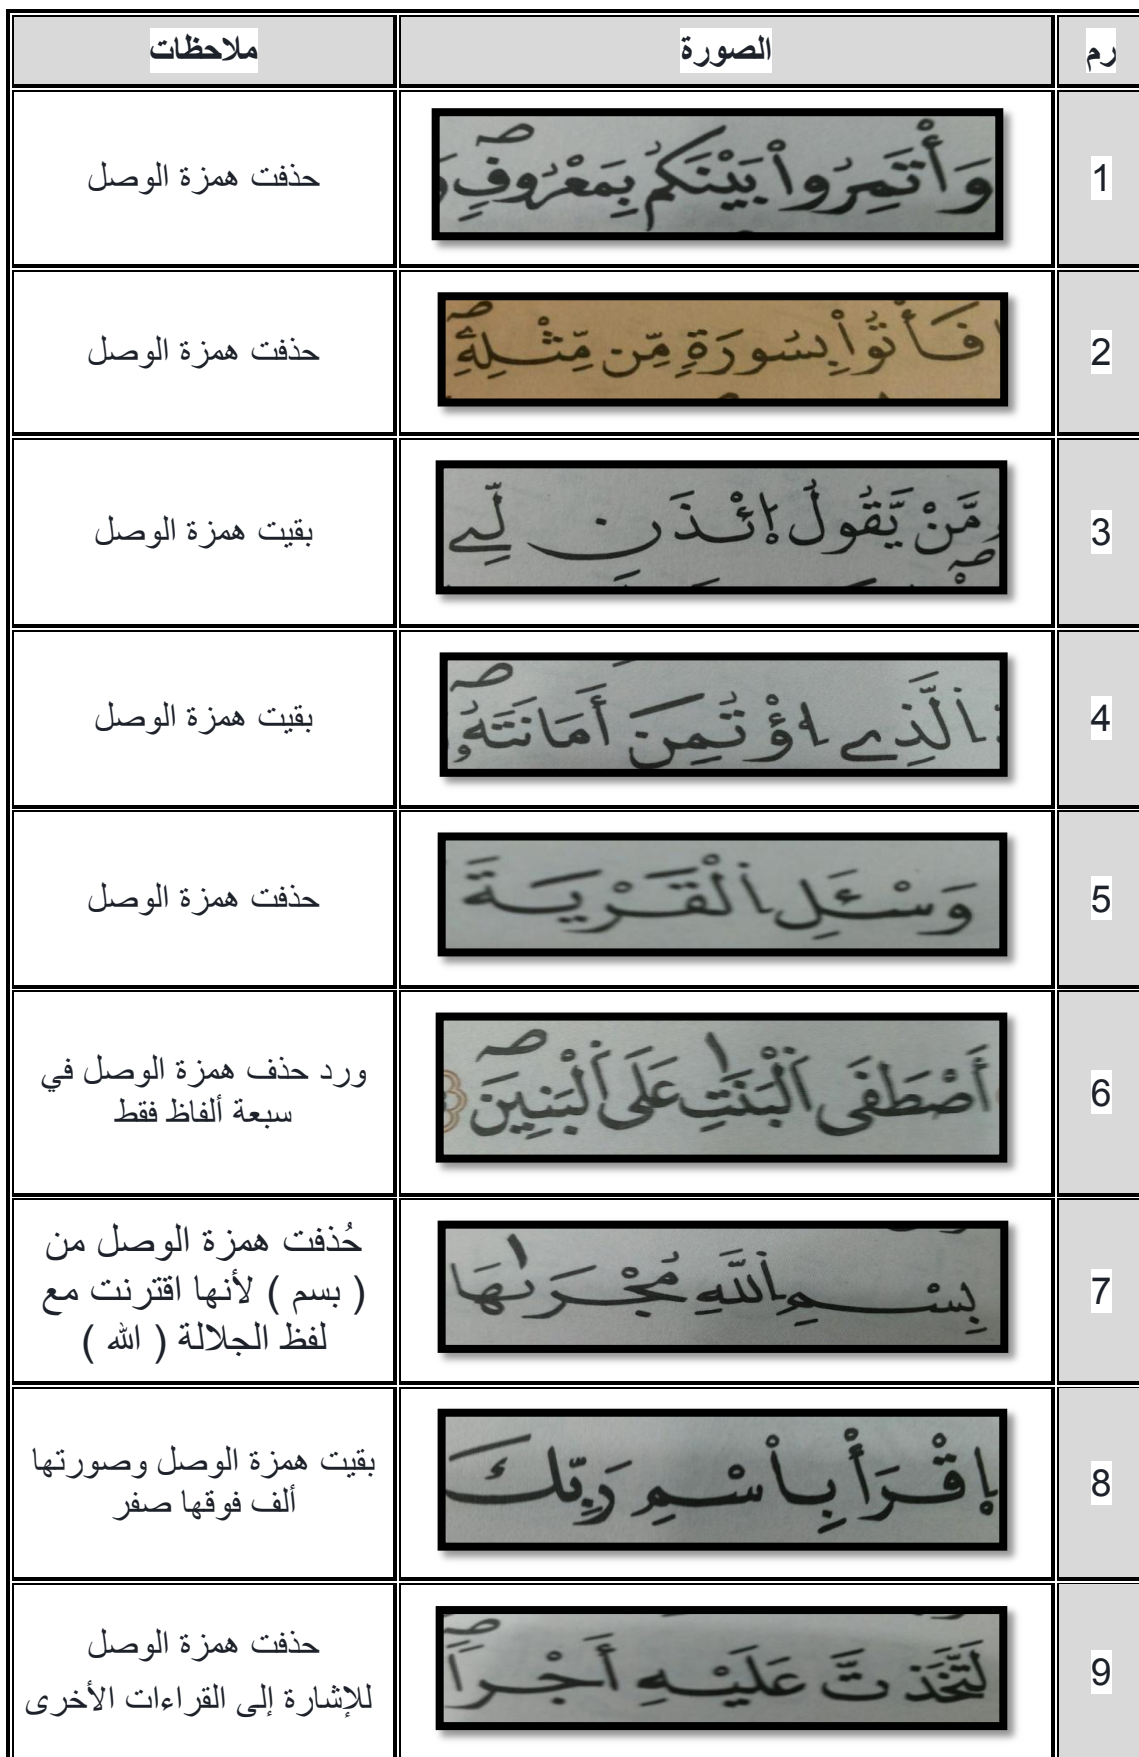 رم الصورة ملاحظات
1 وَأْتَمِرُواْ بَيْنَكُم بِمَعْرُوفٍۖ حذفت همزة الوصل
2 فَأْتُواْ بِسُورَةٍ مِّن مِّثْلِهِۦۖ حذفت همزة الوصل
3 مَّنْ يَّقُولُ اُ۪ئْذَن لِّے بقيت همزة الوصل
4 اَ۬لذِے اِ۟ؤْتُمِنَ أَمَٰنَتَهُۥۖ بقيت همزة الوصل
5 وَسْـَٔلِ اِ۬لْقَرْيَةَ حذفت همزة الوصل
6 أَصْطَفَى اَ۬لْبَنَٰتِ عَلَى اَ۬لْبَنِينَۖ ورد حذف همزة الوصل في
سبعة ألفاظ فقط
7 بِسْمِ اِ۬للَّهِ مُجْر۪ىٰهَا حُذفت همزة الوصل من
( بسم ) لأنها اقترنت مع
لفظ الجلالة ( الله )
8 اِ۪قْرَأْ بِاسْمِ رَبِّكَ بقيت همزة الوصل وصورتها
ألف فوقها صفر
9 لَتَّخَذتَّ عَلَيْهِ أَجْراًۖ حذفت همزة الوصل
للإشارة إلى القراءات الأخرى